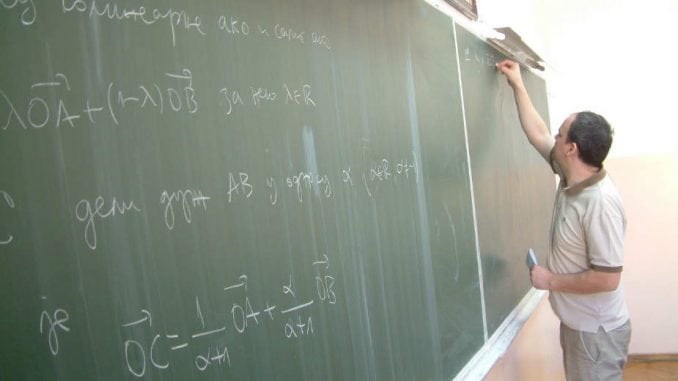 су колинеарне ако и само ако
λOA⃗ + (1-λ)OB⃗ за неко λ∈ℝ
C дели дуж AB у односу α (α∈ℝ, α≠-1)
је OC⃗ = 1/(α+1) OA⃗ + α/(α+1) OB⃗